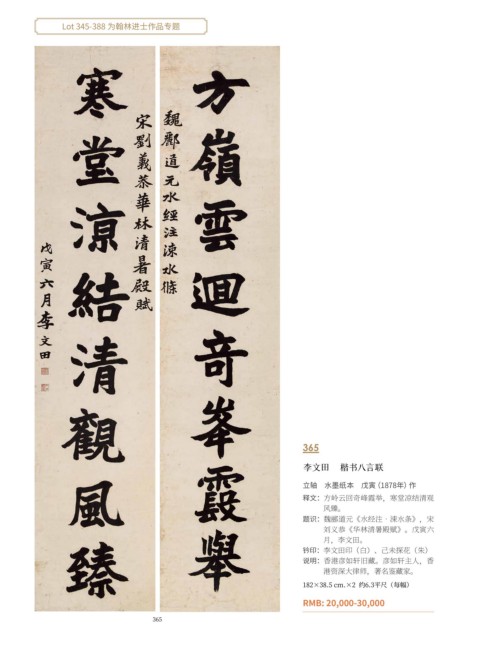 Lot 345-388 为翰林进士作品专题
方嶺雲迴奇峯霞舉
魏酈道元水經注涑水條
宋劉義恭華林清暑殿賦
寒堂涼結清觀風臻
戊寅六月李文田
365
李文田 楷书八言联
立轴 水墨纸本 戊寅(1878年)作
释文:方岭云回奇峰霞举,寒堂凉结清观
风臻。
题识:魏郦道元《水经注·涑水条》,宋
刘义恭《华林清暑殿赋》。戊寅六
月,李文田。
钤印:李文田印(白)、己未探花(朱)
说明:香港彦如轩旧藏。彦如轩主人,香
港资深大律师,著名鉴藏家。
182×38.5 cm.×2 约6.3平尺(每幅)
RMB: 20,000-30,000
365